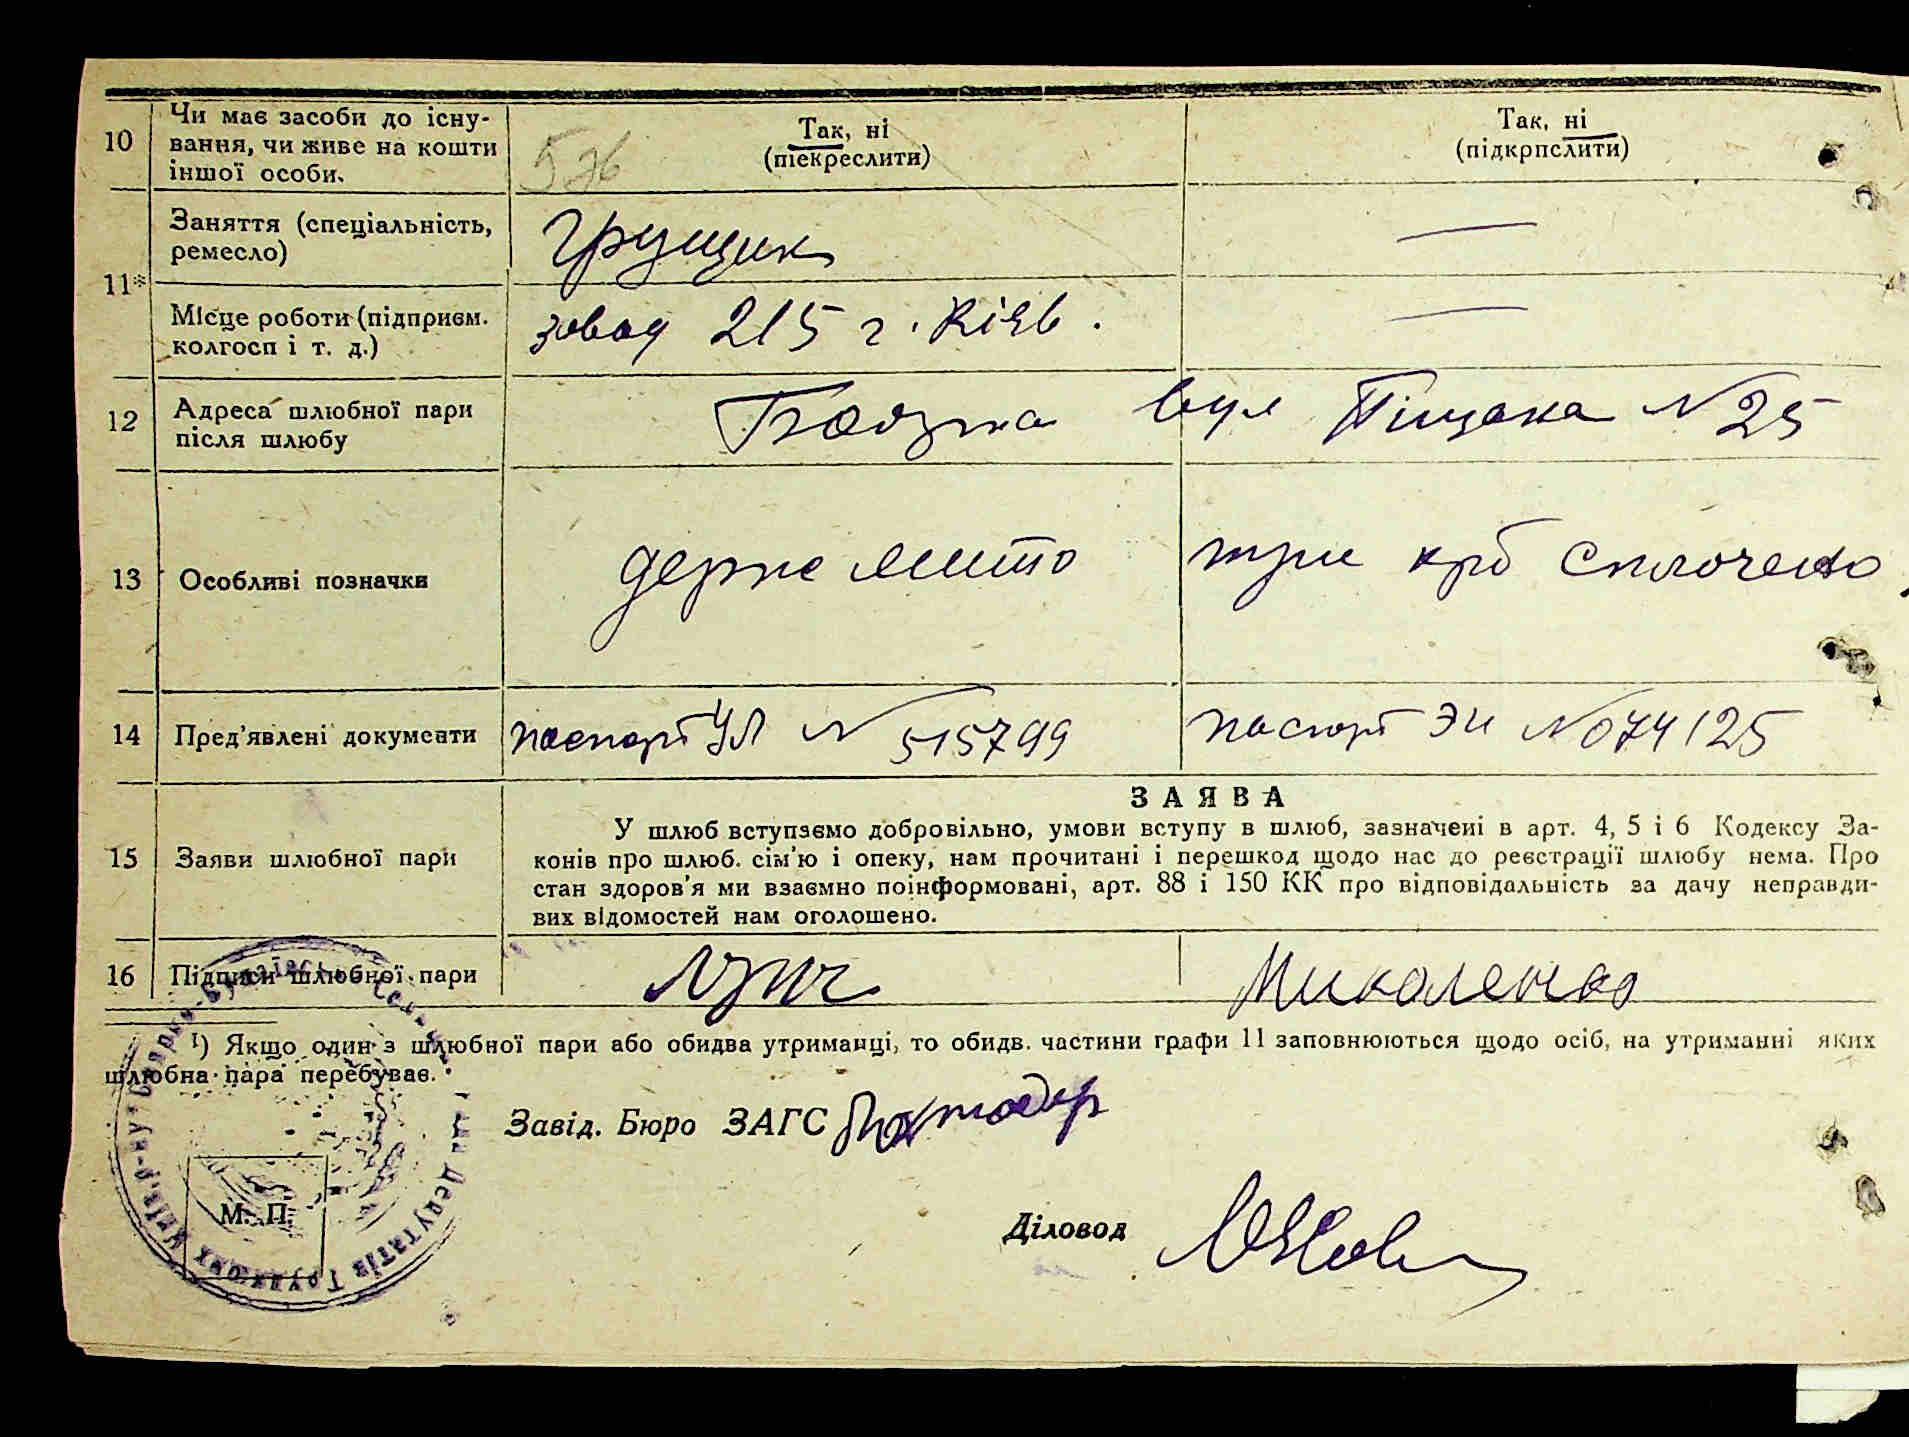 10 Чи має засоби до існу-
вання, чи живе на кошти
іншої особи.
576
Так, ні
(піекреслити)
Так, ні
(підкрпслити)
11*
Заняття (спеціальність,
ремесло)
Грущик
—
Місце роботи (підприєм.
колгосп і т. д.)
завод 215 г. Київ.
—
12 Адреса шлюбної пари
після шлюбу
Боярка вул Піщана N 25
13 Особливі позначки
держ мито три крб сплочено
14 Пред'явлені документи
паспорт УЛ N 515799
паспорт ЭИ N 074125
15 Заяви шлюбної пари
ЗАЯВА
У шлюб вступаємо добровільно, умови вступу в шлюб, зазначені в арт. 4, 5 і 6 Кодексу За-
конів про шлюб. сім'ю і опеку, нам прочитані і перешкод щодо нас до реєстрації шлюбу нема. Про
стан здоров'я ми взаємно поінформовані, арт. 88 і 150 КК про відповідальність за дачу неправди-
вих відомостей нам оголошено.
16 Підписи шлюбної пари
Миколенко
1) Якщо один з шлюбної пари або обидва утриманці, то обидв. частини графи 11 заповнюються щодо осіб, на утриманні яких
шлюбна пара перебуває.
Завід. Бюро ЗАГС
М. П.
Діловод
Депутатів Трудящих